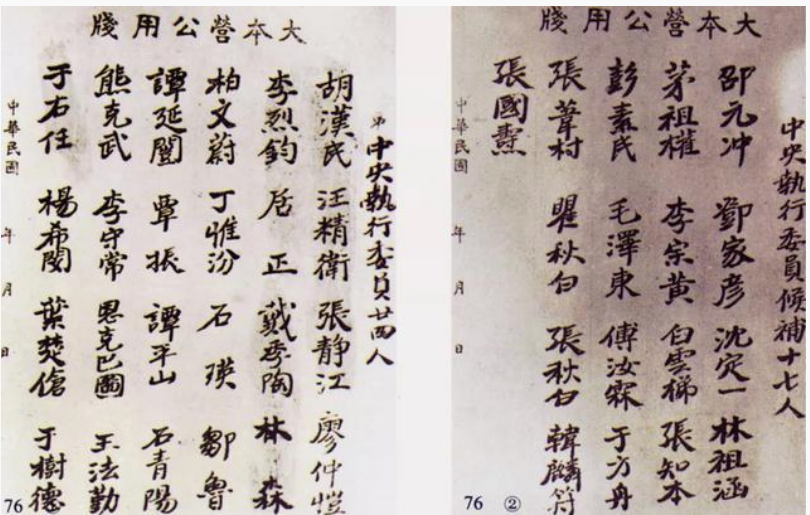 大本營公用牋
中央執行委員廿四人
胡漢民 汪精衛 張靜江 廖仲愷
李烈鈞 居正 戴季陶 林森
柏文蔚 丁惟汾 石瑛 鄒魯
譚延闓 覃振 譚平山 石青陽
熊克武 李守常 恩克巴圖 王法勤
于右任 楊希閔 葉楚傖 于樹德
中華民國 年 月 日
76
大本營公用牋
中央執行委員候補十七人
邵元冲 鄧家彥 沈定一 林祖涵
茅祖權 李宗黃 白雲梯 張知本
彭素民 毛澤東 傅汝霖 于方舟
張葦村 瞿秋白 張秋白 韓麟符
張國燾
中華民國 年 月 日
76 ②